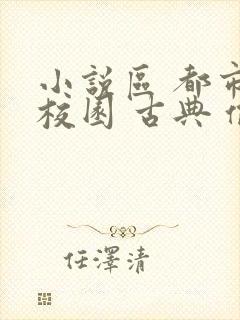 小說區 都市
校園 古典
任澤清